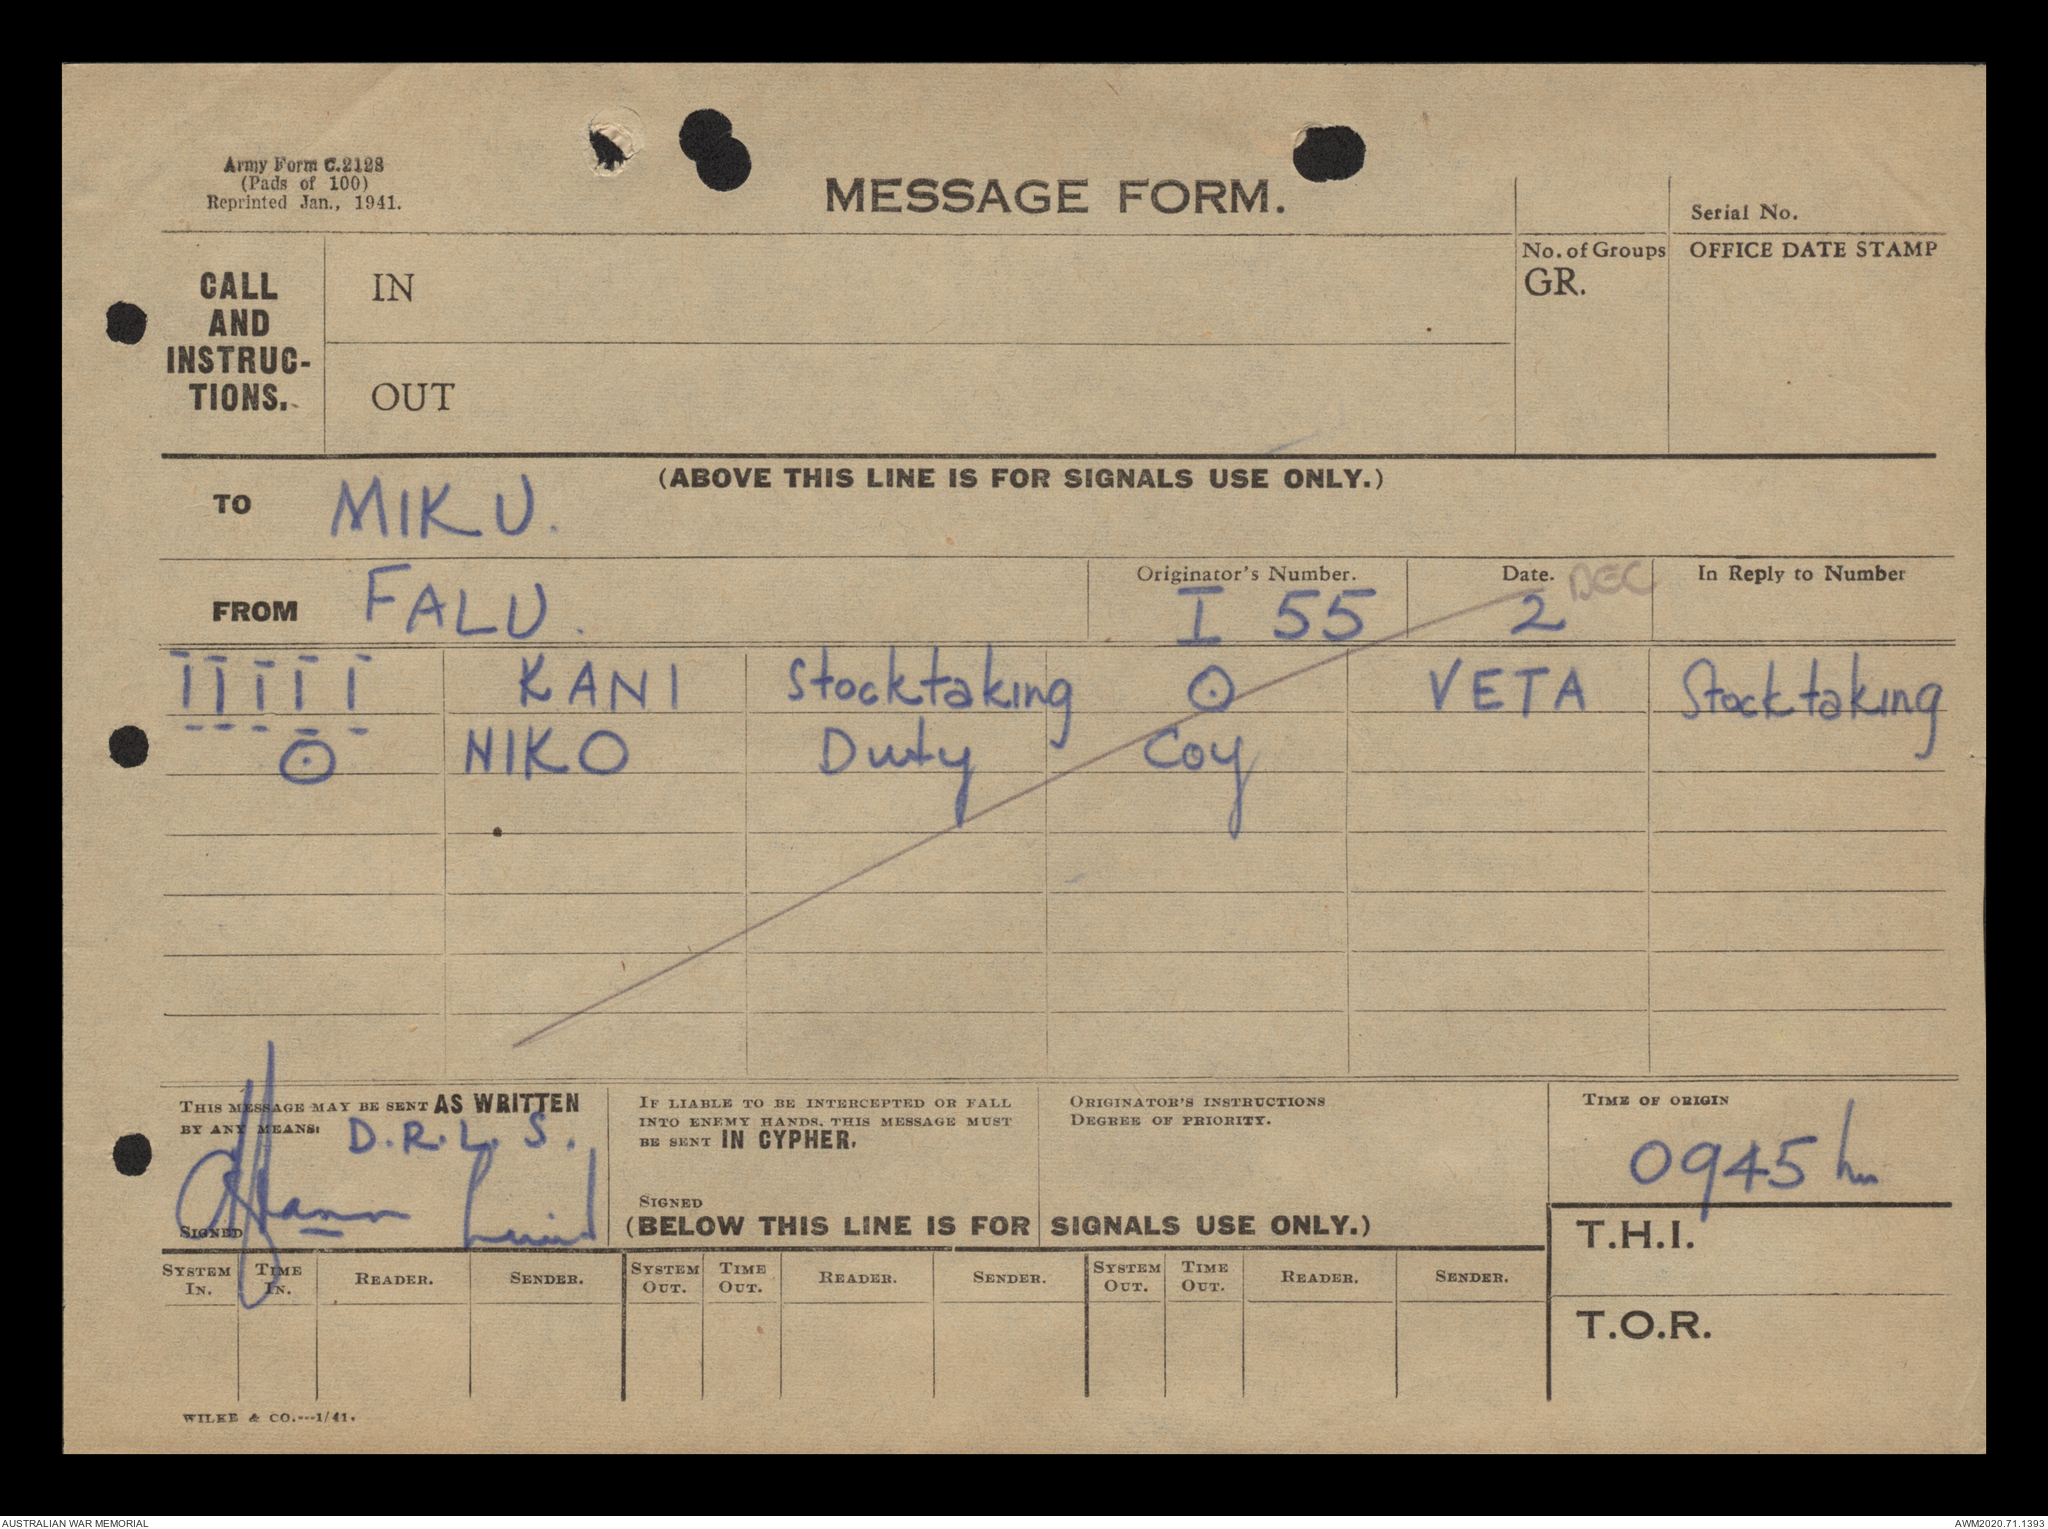 Army Form C.2128
(Pads of 100)
Reprinted Jan., 1941.
MESSAGE FORM.
Serial No.
CALL
AND
INSTRUC-
TIONS.
IN
OUT
No. of Groups
GR.
OFFICE DATE STAMP
(ABOVE THIS LINE IS FOR SIGNALS USE ONLY.)
TO MIKU.
FROM FALU.
Originator's Number. I 55
Date. 2 DEC
In Reply to Number
I I I I I KANI Stocktaking O VETA Stocktaking
O NIKO Duty Coy
THIS MESSAGE MAY BE SENT AS WRITTEN
BY ANY MEANS: D.R.L.S.
SIGNED
IF LIABLE TO BE INTERCEPTED OR FALL
INTO ENEMY HANDS, THIS MESSAGE MUST
BE SENT IN CYPHER.
SIGNED
ORIGINATOR'S INSTRUCTIONS
DEGREE OF PRIORITY.
TIME OF ORIGIN
0945 hrs
(BELOW THIS LINE IS FOR SIGNALS USE ONLY.)
T.H.I.
T.O.R.
SYSTEM IN. TIME IN. READER. SENDER. SYSTEM OUT. TIME OUT. READER. SENDER. SYSTEM OUT. TIME OUT. READER. SENDER.
WILKE & CO.---1/41.
AUSTRALIAN WAR MEMORIAL
AWM2020.71.1393